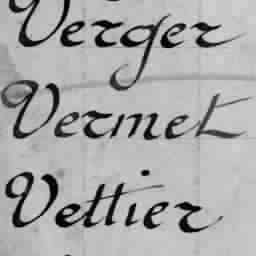 Verger
Vermet
Vettier